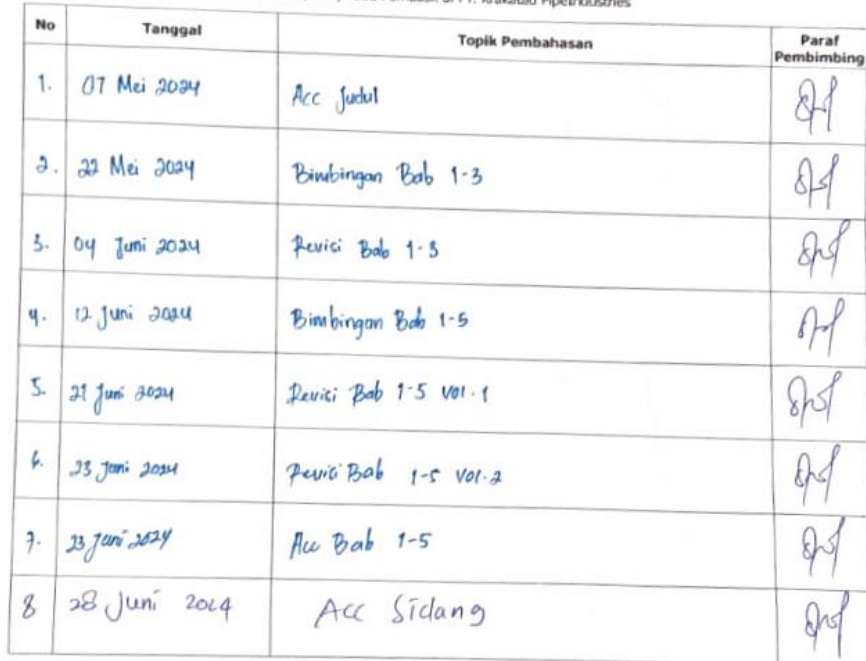 di PT. Krakatau Pipeindustries
No Tanggal Topik Pembahasan Paraf Pembimbing
1. 07 Mei 2024 Acc Judul
2. 22 Mei 2024 Bimbingan Bab 1-3
3. 04 Juni 2024 Revisi Bab 1-3
4. 12 Juni 2024 Bimbingan Bab 1-5
5. 21 Juni 2024 Revisi Bab 1-5 Vol.1
6. 23 Juni 2024 Revisi Bab 1-5 Vol.2
7. 23 Juni 2024 Acc Bab 1-5
8 28 Juni 2024 Acc Sidang